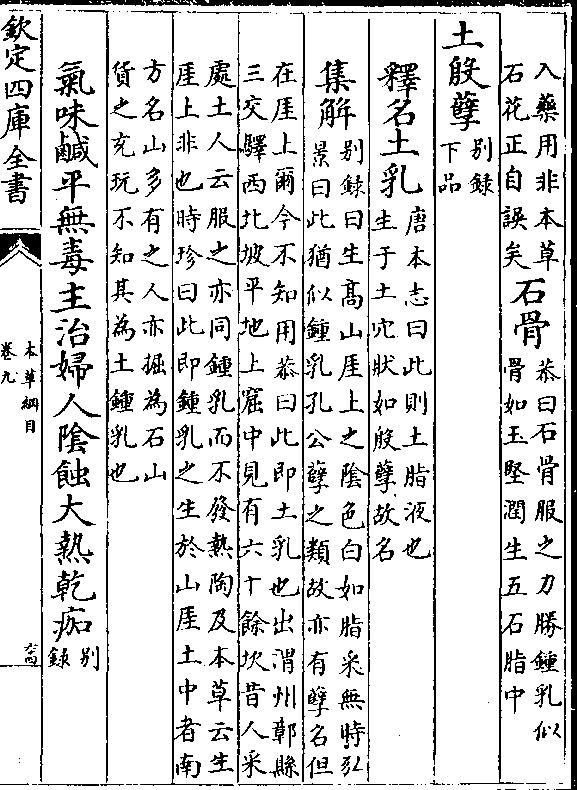 入藥用非本草
石花正自誤矣
石骨
恭曰石骨服之力勝鍾乳似
骨如玉堅潤生五石脂中
土殷孽
别録
下品
釋名土乳
唐本志曰此則土脂液也
生于土穴狀如殷孽故名
集解
别録曰生髙山厓上之陰色白如脂采無時弘
景曰此猶似鍾乳孔公孽之類故亦有孽名但
在厓上爾今不知用恭曰此即土乳也出渭州鄣縣
三交驛西北坡平地上窟中見有六十餘坎昔人采
處土人云服之亦同鍾乳而不發熱陶及本草云生
厓上非也時珍曰此即鍾乳之生於山厓土中者南
方名山多有之人亦掘為石山
貨之充玩不知其為土鍾乳也
氣味鹹平無毒主治婦人陰蝕大熱乾痂
别
録
欽定四庫全書
本草綱目
卷九